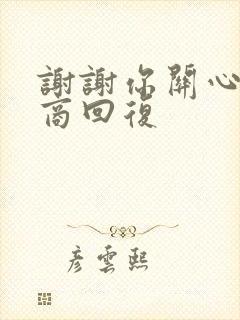 謝謝你關心
商回復
彦雲熙